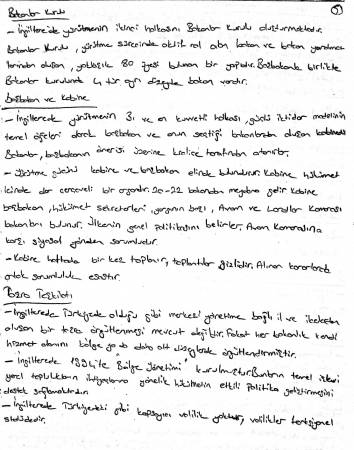 Bakanlar Kurulu
5
- İngiltere'de yürütmenin ikinci halkasını Bakanlar Kurulu oluşturmaktadır.
Bakanlar Kurulu, yürütme sürecinde aktif rol alan bakan ve bakan yardımcı
larından oluşan, yaklaşık 80 üyesi bulunan bir yapıdır. Başbakanla birlikte
Bakanlar kurulunda 4 tür ayrı düzeyde bakan vardır.
Başbakan ve Kabine
- İngilterede yürütmenin 3. ve en kuvvetli halkası, güçlü iktidar modelinin
temel öğeleri olarak başbakan ve onun seçtiği bakanlardan oluşan
Bakanlar, başbakanın önerisi üzerine kraliçe tarafından atanırlar.
- Yürütme gücü kabine ve başbakan elinde bulundurur. Kabine hükümet
içinde dar çerçeveli bir organdır. 20-22 bakandan meydana gelir. Kabine
başbakan, hükümet sekreterleri, yargının başı, Avam ve Lordlar Kamarası
bakanları bulunur. Ülkenin genel politikasını belirler, Avam Kamarasına
karşı siyasal yönden sorumludur.
- Kabine haftada bir kez toplanır, toplantılar gizlidir. Alınan kararlarda
ortak sorumluluk esastır.
Taşra Teşkilatı
- İngilterede Türkiyede olduğu gibi merkezi yönetime bağlı il ve ilçelerden
oluşan bir taşra örgütlenmesi mevcut değildir. Fakat her bakanlık kendi
hizmet alanını bölge ya da daha alt düzeylerde örgütlendirmiştir.
- İngilterede 1994'te Bölge Yönetimi kurulmuştur. Bunların temel işlevi
yerel toplulukların ihtiyaçlarına yönelik hükümetin etkili politika geliştirmesini
destek sağlamaktadır.
- İngilterede Türkiyedeki gibi kapsayıcı valilik yoktur, valilikler
statüdedir.